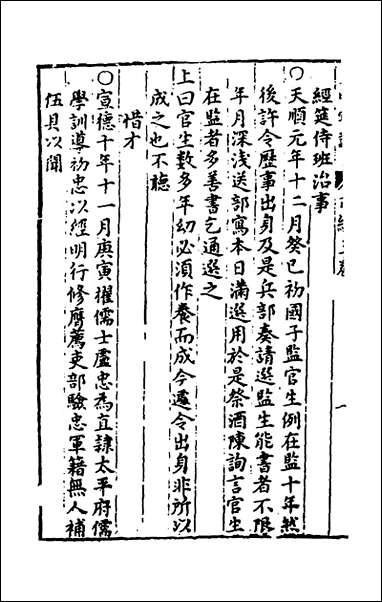 經筵侍班治事
○天順元年十二月癸巳初國子監官生例在監十年然
後許令歷事出身及是兵部奏請選監生能書者不限
年月深淺送部寫本日滿選用於是祭酒陳詢言官生
在監者多善書乞通選之
上曰官生數多年幼必須作養而成今遽令出身非所以
成之也不聽
惜才
○宣德十年十一月庚寅擢儒士盧忠為直隸太平府儒
學訓導初忠以經明行修膺薦吏部驗忠軍籍無人補
伍具以聞